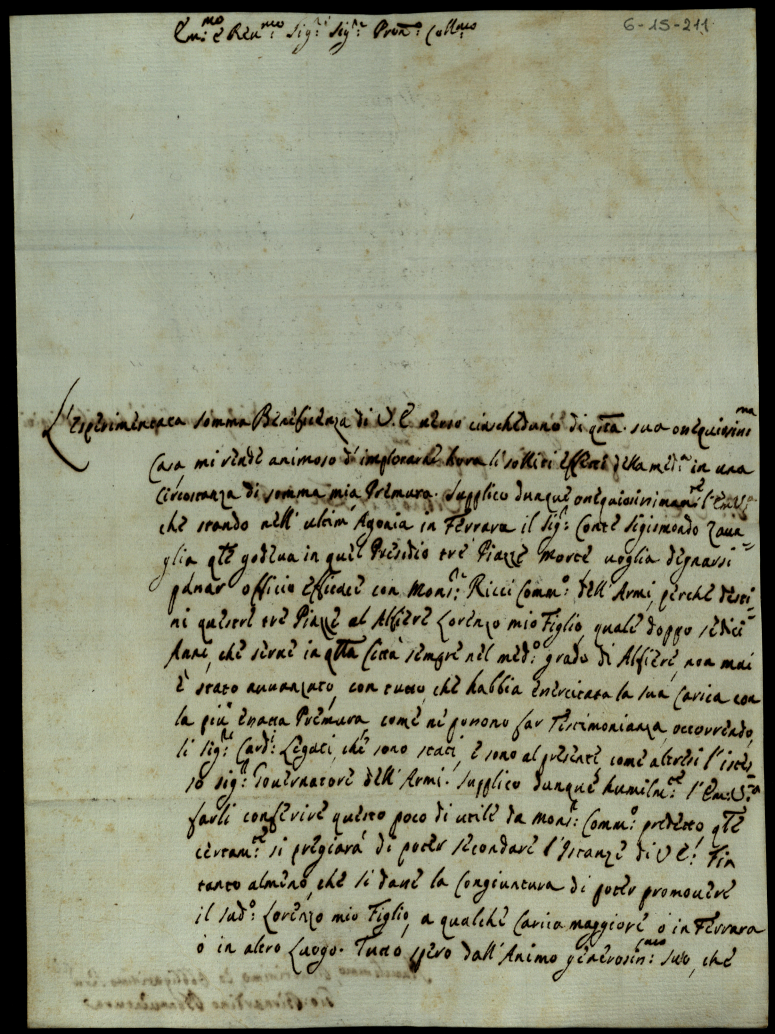 6-15-211
Em:mo e Reu:mo Sig:r Sig:r Pron: Coll:mo
L'esperimentata somma Beneficenza di V.E verso ciascheduno di qta. sua ossequiosis:ma
Casa, mi rende animoso d'implorarne hora li soliti effetti della med:a in una
circostanza di somma mia Premura. Supplico dunque ossequiosissimam:te l'Em:V:a
che stando nell'ultim'Agonia in Ferrara il Sig: Conte Sigismondo Zaua=
glia qte godeua in quel Presidio tre Piazze morte, uoglia degnarsi
passar officio efficace con Mons:r Ricci Comm:o dell'Armi, perche desti=
ni queste tre Piazze al Alfiere Lorenzo mio Figlio, quale doppo sedici
Anni, che serue in qtta Città sempre nel med:o grado di Alfiere, non mai
è stato auuanzato, con tutto che habbia esercitata la sua Carica con
la più esatta Premura, come ne possono far Testimonianza, occorrendo,
li Sig:ri Card:i Legati, che sono stati, e sono al presente, come altresi l'istes=
so sig:r Gouernatore dell'Armi. Supplico dunque humilm:te l'Em:V:a
farli conferire questo poco di utile da Mons:r Comm:o predetto, qte
certam:te si pregiarà di poter secondare l'Istanze di V E: Fin
tanto almeno, che si dasse la Congiuntura di poter promouere
il sud:o Lorenzo mio Figlio, a qualche Carica maggiore ò in Ferrara
ò in altro Luogo. Tutto spero dall'Animo generosis:mo suo, che